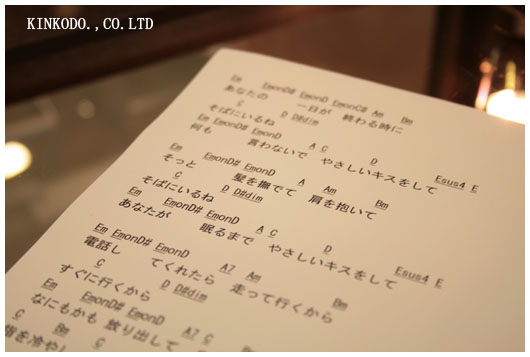 KINKODO.,CO.LTD
Em EmonD# EmonD EmonC# Am Bm
あなたの 一日が 終わる時に
C D D#dim
そばにいるね
Em EmonD# EmonD A C D Esus4 E
何も 言わないで やさしいキスをして
Em EmonD# EmonD A Am Bm
そっと 髪を撫でて 肩を抱いて
C D D#dim
そばにいるね
Em EmonD# EmonD A C D Esus4 E
あなたが 眠るまで やさしいキスをして
Em EmonD# EmonD A7 Am Bm
電話し てくれたら 走って行くから
C D D#dim
すぐに行くから
Em EmonD# EmonD A7 C
なにもかも 放り出して
C Bm
指を冷やし